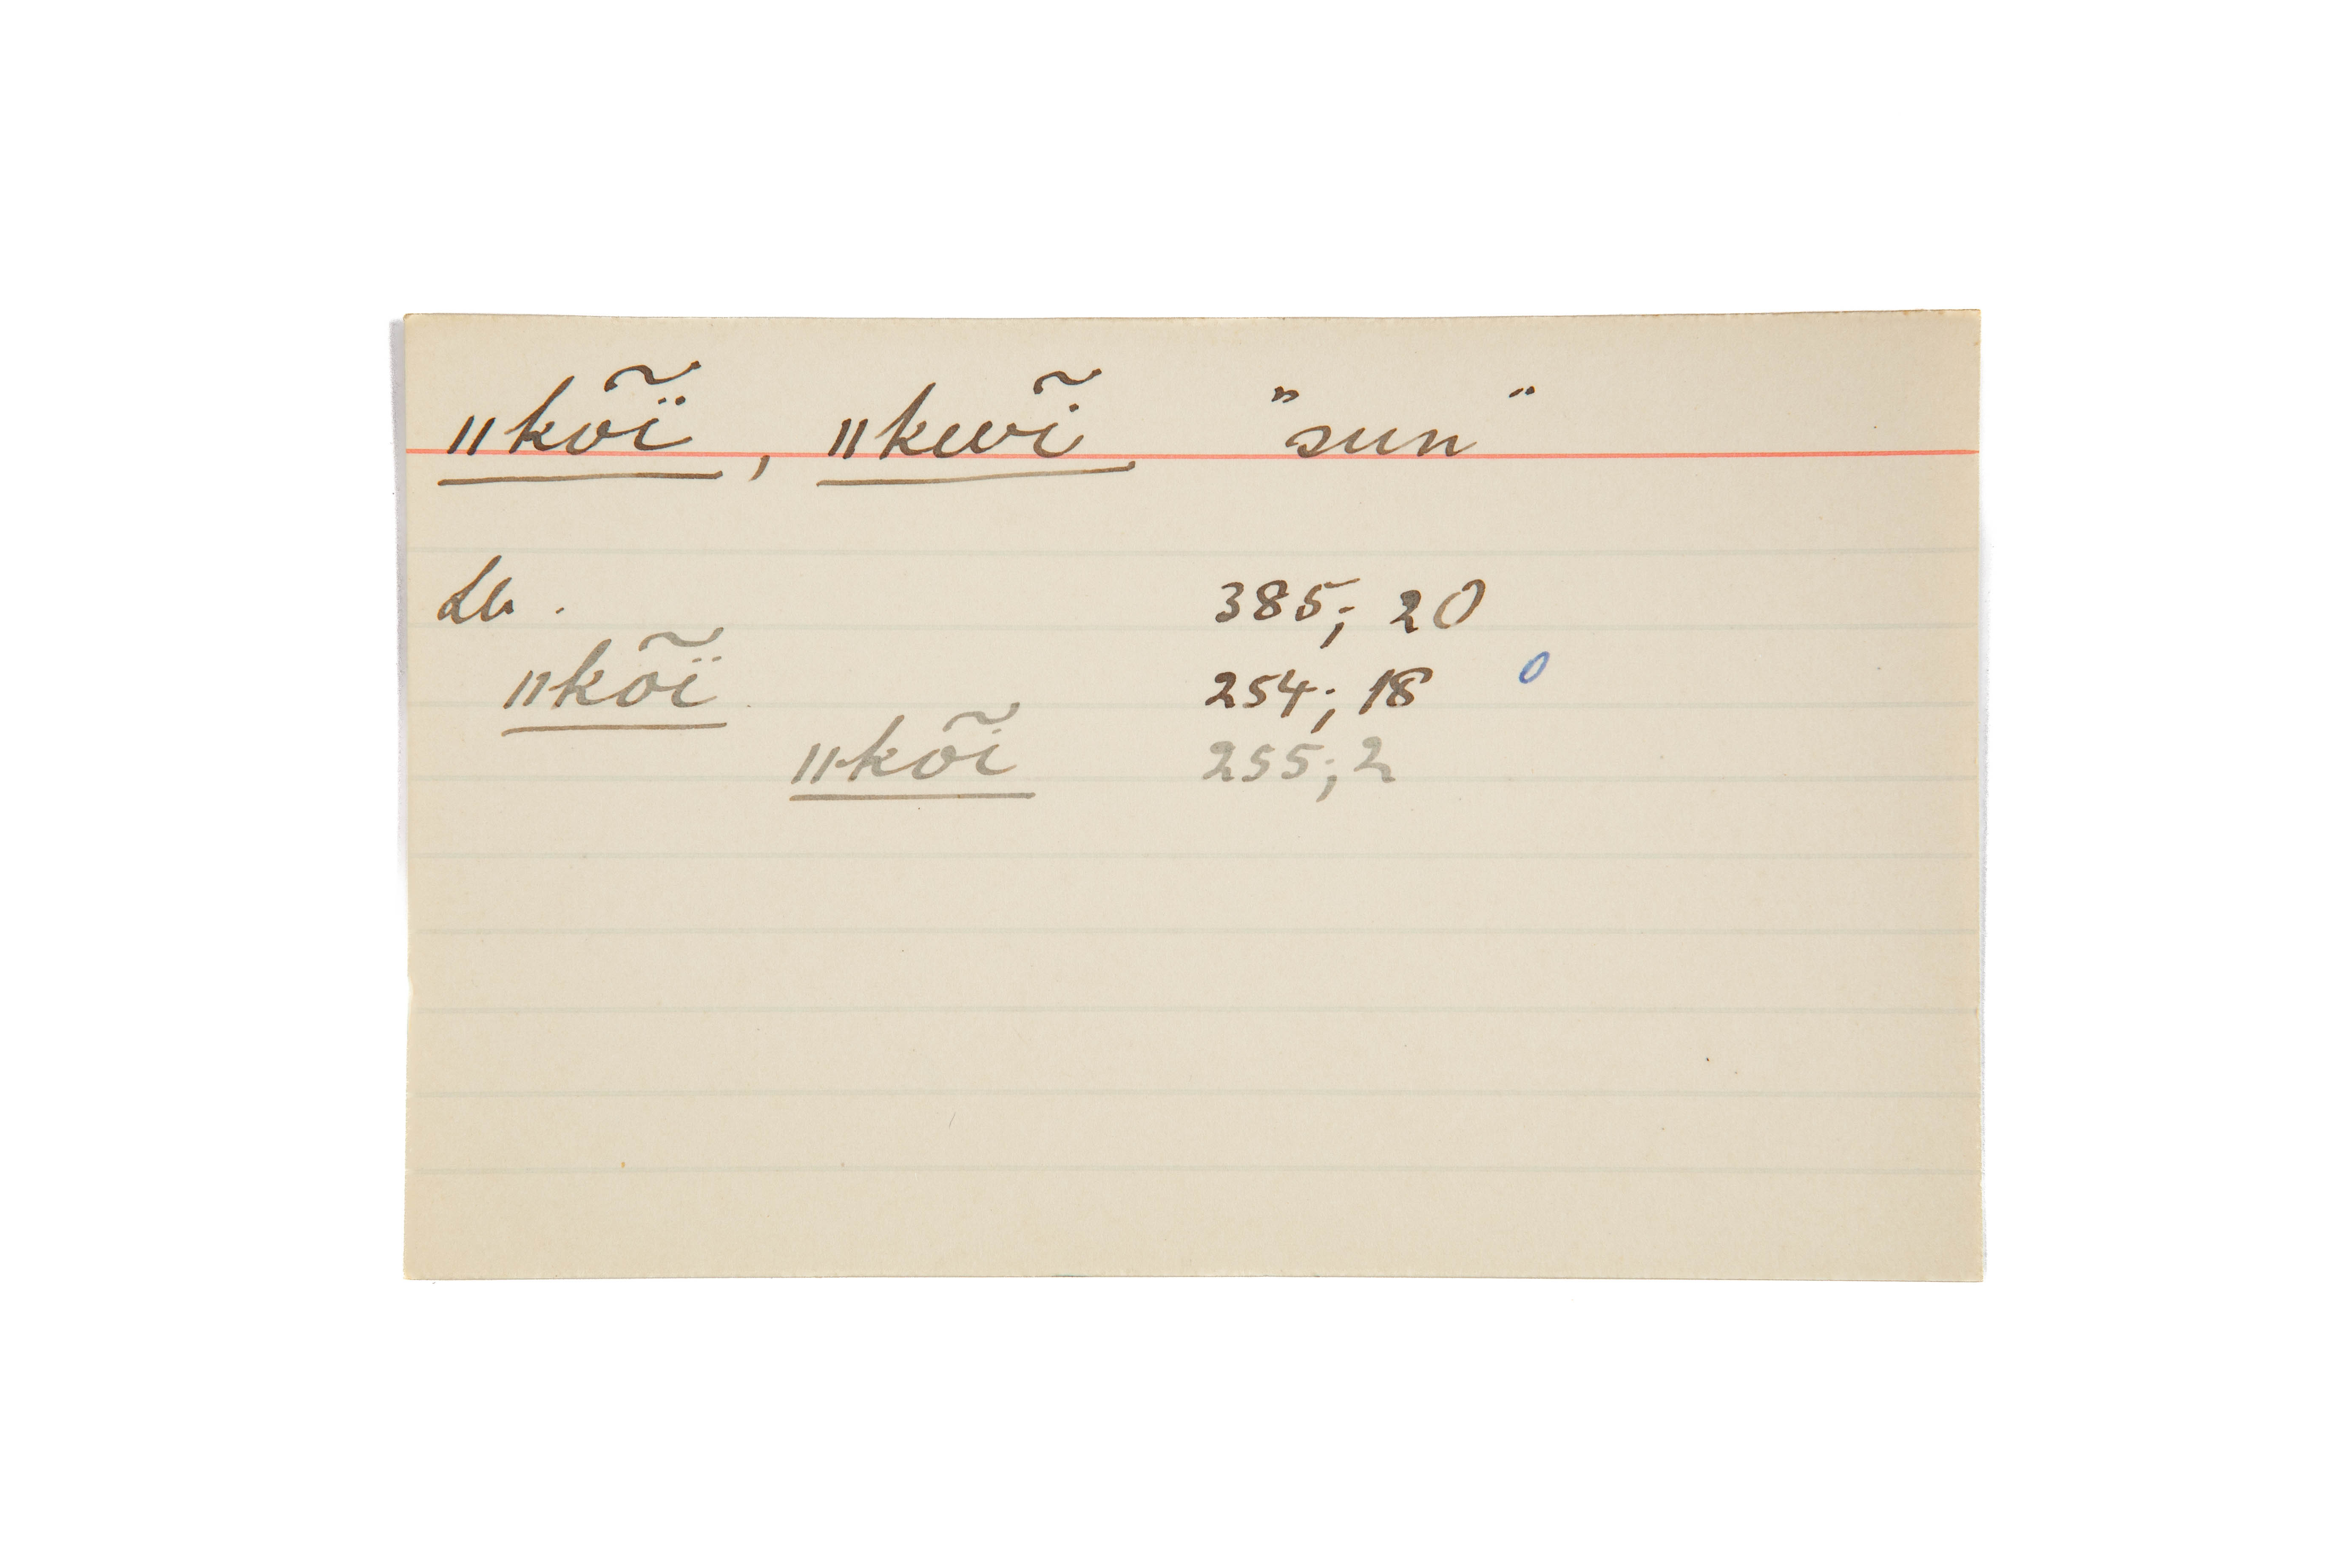 ǁkõĩ̈, ǁkwõĩ "sun"
Lb. 385; 20
ǁkõĩ̈ 254; 18 0
ǁkõĩ 255; 2